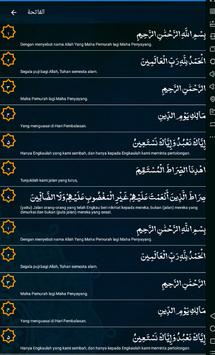 الفاتحة
١
بِسْمِ اللَّهِ الرَّحْمَٰنِ الرَّحِيمِ
Dengan menyebut nama Allah Yang Maha Pemurah lagi Maha Penyayang.
٢
الْحَمْدُ لِلَّهِ رَبِّ الْعَالَمِينَ
Segala puji bagi Allah, Tuhan semesta alam.
٣
الرَّحْمَٰنِ الرَّحِيمِ
Maha Pemurah lagi Maha Penyayang.
٤
مَالِكِ يَوْمِ الدِّينِ
Yang menguasai di Hari Pembalasan.
٥
إِيَّاكَ نَعْبُدُ وَإِيَّاكَ نَسْتَعِينُ
Hanya Engkaulah yang kami sembah, dan hanya kepada Engkaulah kami meminta pertolongan.
٦
اهْدِنَا الصِّرَاطَ الْمُسْتَقِيمَ
Tunjukilah kami jalan yang lurus,
٧
صِرَاطَ الَّذِينَ أَنْعَمْتَ عَلَيْهِمْ غَيْرِ الْمَغْضُوبِ عَلَيْهِمْ وَلَا الضَّالِّينَ
(yaitu) Jalan orang-orang yang telah Engkau beri nikmat kepada mereka; bukan (jalan) mereka yang
dimurkai dan bukan (pula jalan) mereka yang sesat.
١
بِسْمِ اللَّهِ الرَّحْمَٰنِ الرَّحِيمِ
Dengan menyebut nama Allah Yang Maha Pemurah lagi Maha Penyayang.
٢
الْحَمْدُ لِلَّهِ رَبِّ الْعَالَمِينَ
Segala puji bagi Allah, Tuhan semesta alam.
٣
الرَّحْمَٰنِ الرَّحِيمِ
Maha Pemurah lagi Maha Penyayang.
٤
مَالِكِ يَوْمِ الدِّينِ
Yang menguasai di Hari Pembalasan.
٥
إِيَّاكَ نَعْبُدُ وَإِيَّاكَ نَسْتَعِينُ
Hanya Engkaulah yang kami sembah, dan hanya kepada Engkaulah kami meminta pertolongan.